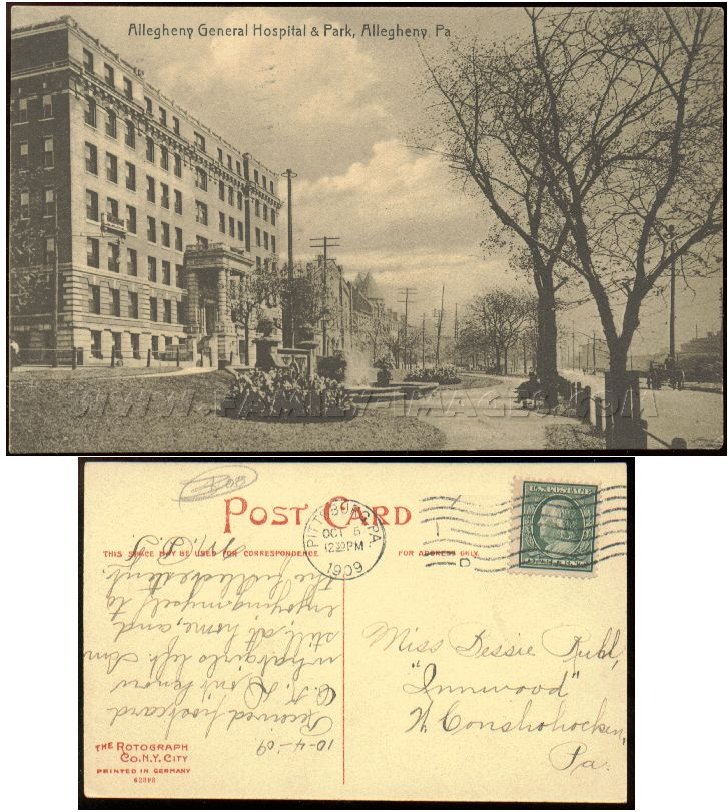 Allegheny General Hospital & Park, Allegheny, Pa
WWW.FAMILY-IMAGES.COM
308
POST CARD
THIS SPACE MAY BE USED FOR CORRESPONDENCE.
FOR ADDRESS ONLY.
PITTSBURG, PA.
OCT 5
12 PM
1909
U.S. POSTAGE
10-4-'09
Received postcard
O.K. Don't know
what girls left. Am
still at home, and
enjoying myself to
the fullest extent.
Miss Bessie Ruhl,
"Innwood"
W. Conshohocken,
Pa.
THE ROTOGRAPH
CO. N.Y. CITY
PRINTED IN GERMANY